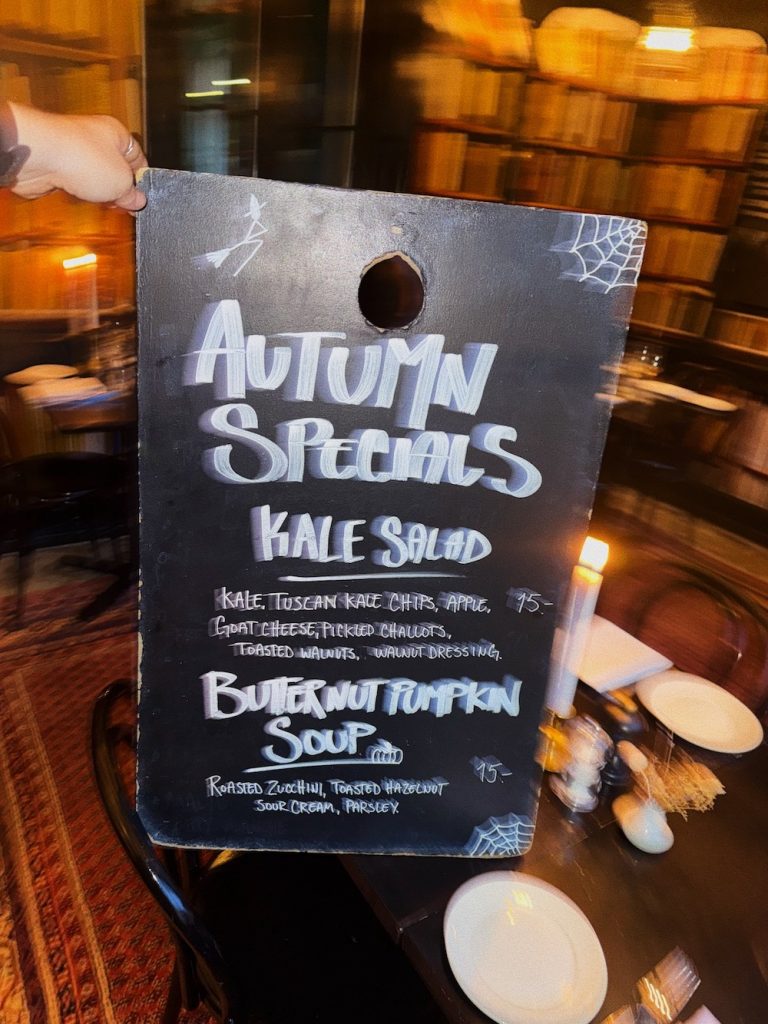 AUTUMN
SPECIALS
KALE SALAD
KALE, TUSCAN KALE CHIPS, APPLE, 15.-
GOAT CHEESE, PICKLED CHALLOTS,
TOASTED WALNUTS, WALNUT DRESSING.
BUTTERNUT PUMPKIN
SOUP
15.-
ROASTED ZUCCHINI, TOASTED HAZELNUT
SOUR CREAM, PARSLEY.